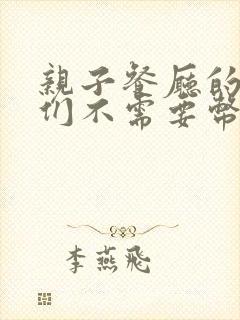 親子餐廳的
们不需要幣
李燕飛